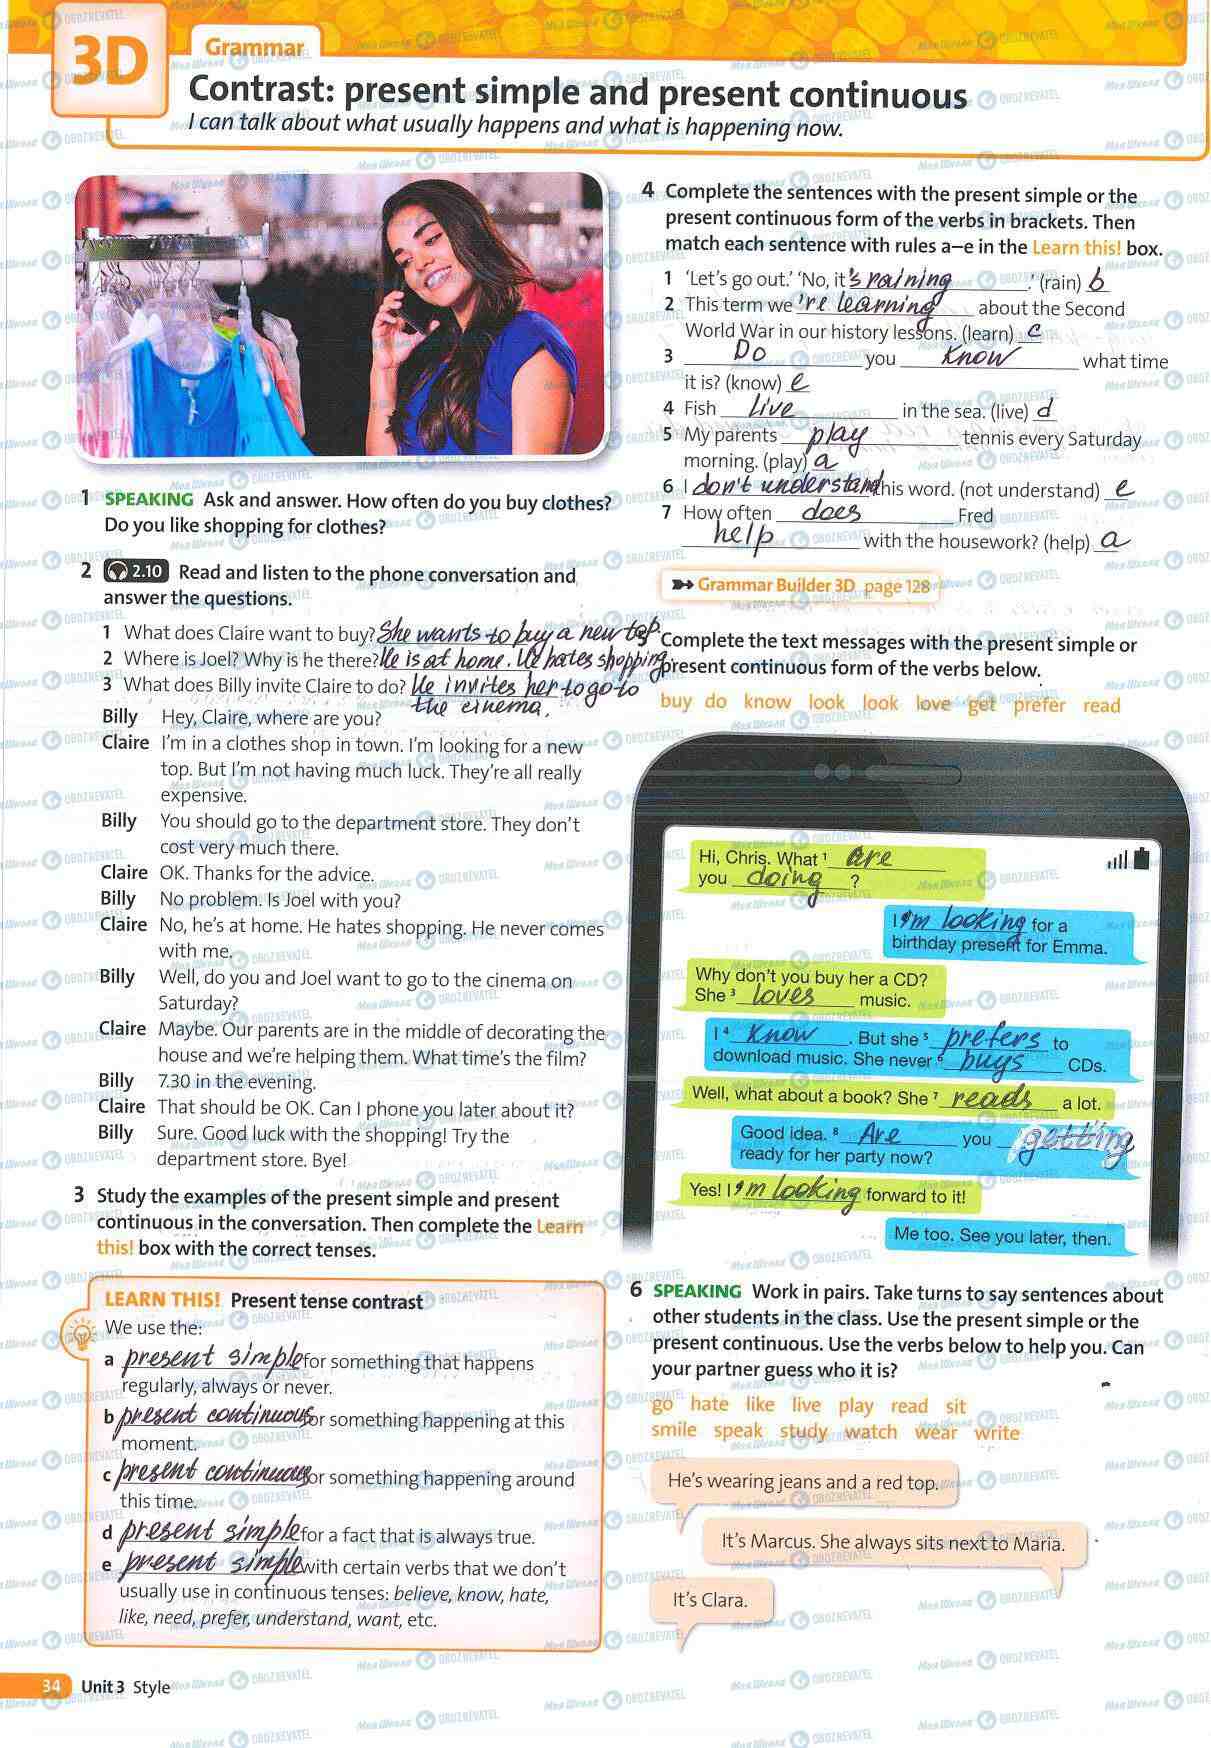 3D
Grammar
Contrast: present simple and present continuous
I can talk about what usually happens and what is happening now.
1 SPEAKING Ask and answer. How often do you buy clothes?
Do you like shopping for clothes?
2 2.10 Read and listen to the phone conversation and
answer the questions.
1 What does Claire want to buy? She wants to buy a new top.
2 Where is Joel? Why is he there? He is at home. He hates shopping.
3 What does Billy invite Claire to do? He invites her to go to
the cinema.
Billy Hey, Claire, where are you?
Claire I'm in a clothes shop in town. I'm looking for a new
top. But I'm not having much luck. They're all really
expensive.
Billy You should go to the department store. They don't
cost very much there.
Claire OK. Thanks for the advice.
Billy No problem. Is Joel with you?
Claire No, he's at home. He hates shopping. He never comes
with me.
Billy Well, do you and Joel want to go to the cinema on
Saturday?
Claire Maybe. Our parents are in the middle of decorating the
house and we're helping them. What time's the film?
Billy 7.30 in the evening.
Claire That should be OK. Can I phone you later about it?
Billy Sure. Good luck with the shopping! Try the
department store. Bye!
3 Study the examples of the present simple and present
continuous in the conversation. Then complete the Learn
this! box with the correct tenses.
LEARN THIS! Present tense contrast
We use the:
a present simple for something that happens
regularly, always or never.
b present continuous for something happening at this
moment.
c present continuous for something happening around
this time.
d present simple for a fact that is always true.
e present simple with certain verbs that we don't
usually use in continuous tenses: believe, know, hate,
like, need, prefer, understand, want, etc.
34 Unit 3 Style
4 Complete the sentences with the present simple or the
present continuous form of the verbs in brackets. Then
match each sentence with rules a–e in the Learn this! box.
1 'Let's go out.' 'No, it 's raining .' (rain) b
2 This term we 're learning about the Second
World War in our history lessons. (learn) c
3 Do you know what time
it is? (know) e
4 Fish live in the sea. (live) d
5 My parents play tennis every Saturday
morning. (play) a
6 I don't understand this word. (not understand) e
7 How often does Fred
help with the housework? (help) a
Grammar Builder 3D page 128
5 Complete the text messages with the present simple or
present continuous form of the verbs below.
buy do know look look love get prefer read
Hi, Chris. What 1 are
you doing ?
I 2 'm looking for a
birthday present for Emma.
Why don't you buy her a CD?
She 3 loves music.
I 4 know . But she 5 prefers to
download music. She never 6 buys CDs.
Well, what about a book? She 7 reads a lot.
Good idea. 8 Are you getting
ready for her party now?
Yes! I 9 'm looking forward to it!
Me too. See you later, then.
6 SPEAKING Work in pairs. Take turns to say sentences about
other students in the class. Use the present simple or the
present continuous. Use the verbs below to help you. Can
your partner guess who it is?
go hate like live play read sit
smile speak study watch wear write
He's wearing jeans and a red top.
It's Marcus. She always sits next to Maria.
It's Clara.